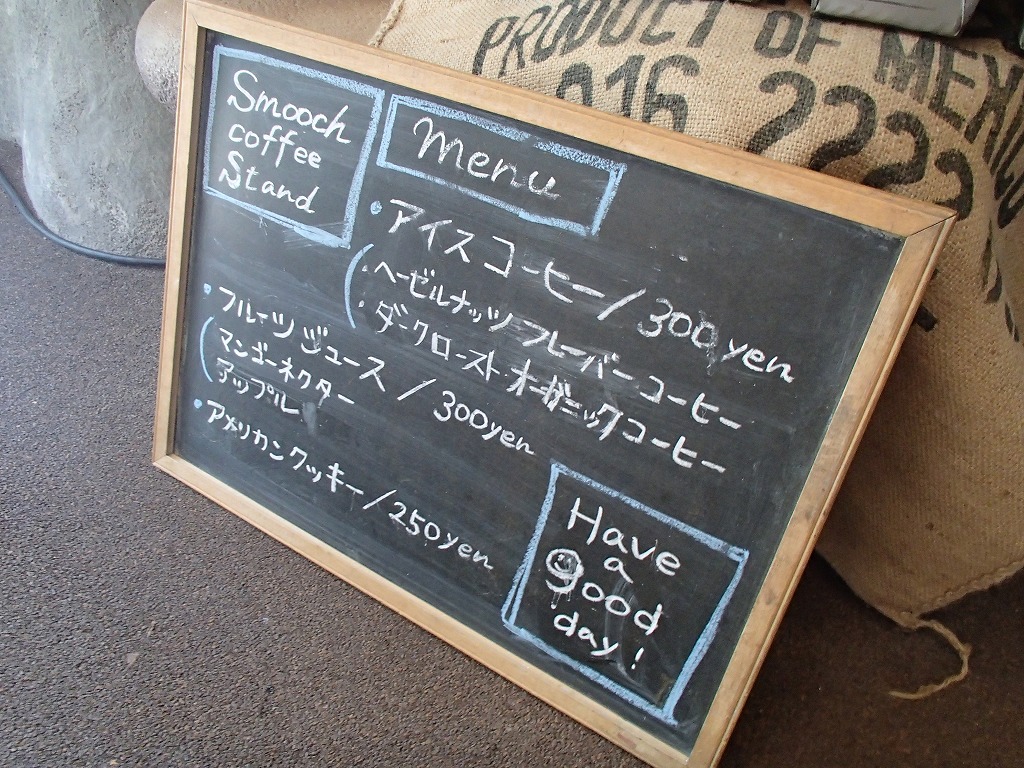 Smooch
coffee
Stand
Menu
・アイスコーヒー/300yen
・ヘーゼルナッツフレーバーコーヒー
・ダークローストオーガニックコーヒー
・フルーツジュース/300yen
マンゴーネクター
アップル
・アメリカンクッキー/250yen
Have
a
good
day!
PRODUCT OF MEXICO
016 222